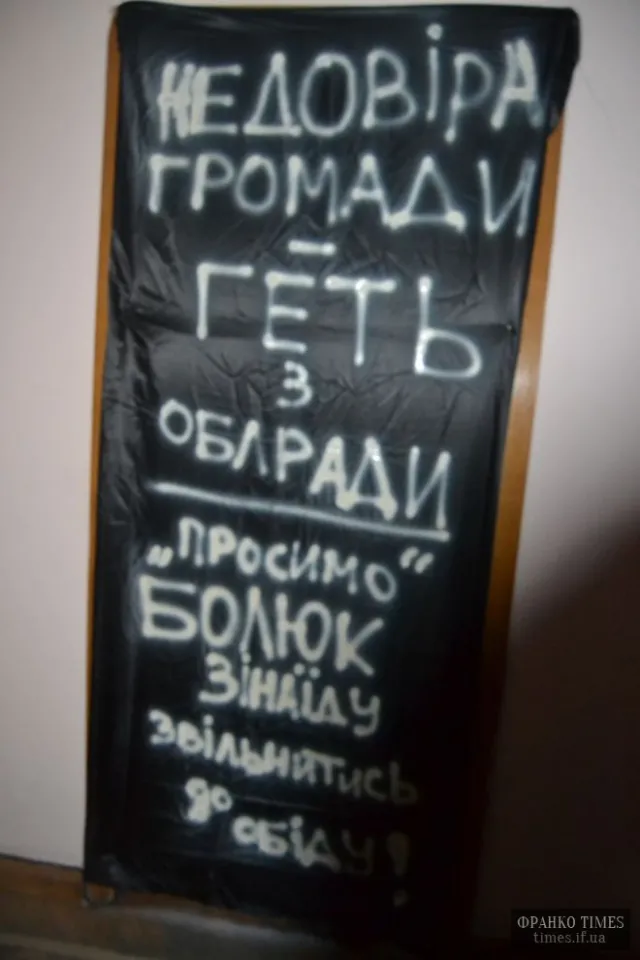 НЕДОВІРА
ГРОМАДИ
–
ГЕТЬ
З
ОБЛРАДИ
„ПРОСИМО“
БОЛЮК
ЗІНАЇДУ
ЗВІЛЬНИТИСЬ
до
обіду!
ФРАНКО TIMES
times.if.ua